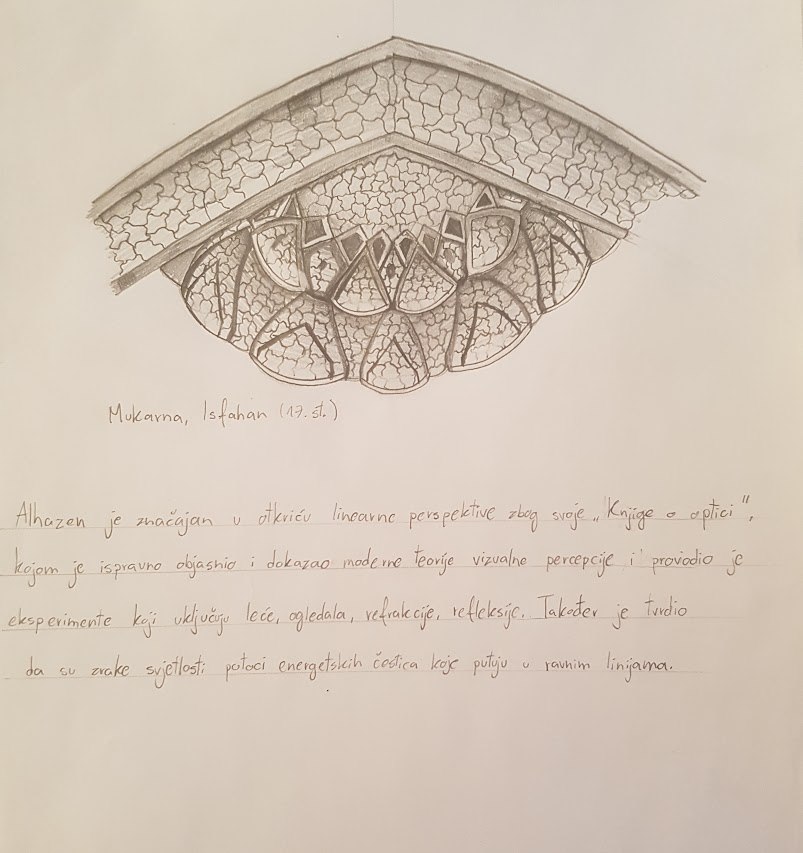 Mukarna, Isfahan (17. st.)
Alhazen je značajan u otkriću linearne perspektive zbog svoje „Knjige o optici",
kojom je ispravno objasnio i dokazao moderne teorije vizualne percepcije i provodio je
eksperimente koji uključuju leće, ogledala, refrakcije, refleksije. Također je tvrdio
da su zrake svjetlosti potoci energetskih čestica koje putuju u ravnim linijama.